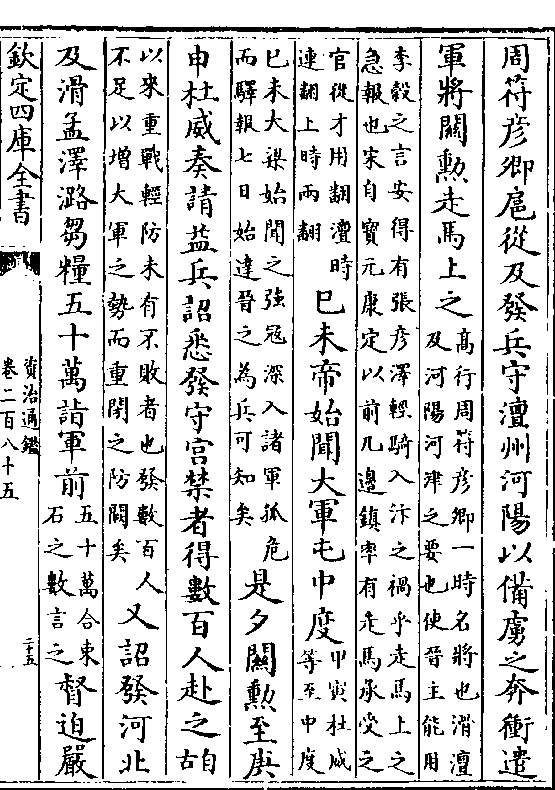 周符彦卿扈從及發兵守澶州河陽以備虜之奔衝遣
軍將關勲走馬上之
高行周符彦卿一時名將也滑澶
及河陽河津之要也使晉主能用
李穀之言安得有張彦澤輕騎入汴之禍乎走馬上之
急報也宋自寶元康定以前凡邊鎮率有走馬承受之
官從才用翻澶時
連翻上時兩翻
己未帝始聞大軍屯中度
甲寅杜威
等至中度
己未大梁始聞之強寇深入諸軍孤危
而驛報七日始達晉之為兵可知矣
是夕關勲至庚
申杜威奏請益兵詔悉發守宮禁者得數百人赴之
自
古
以來重戰輕防未有不敗者也發數百人
不足以增大軍之勢而重閉之防闕矣
又詔發河北
及滑孟澤潞芻糧五十萬詣軍前
五十萬合束
石之數言之
督迫嚴
欽定四庫全書
資治通鑑
卷二百八十五
二十五